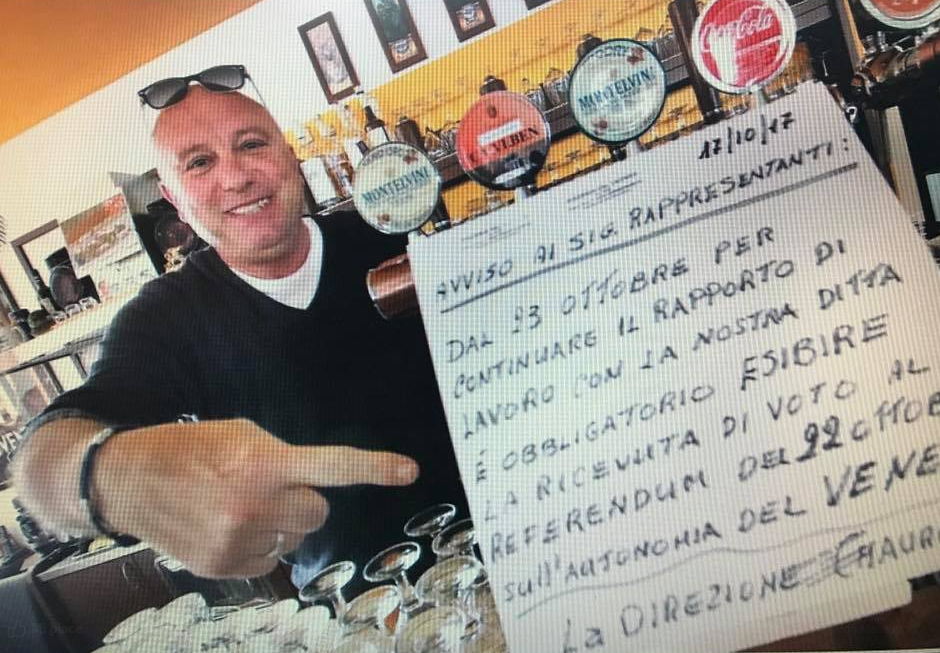 MONTELVINI
VEBEN
MONTELVINI
Coca-Cola
17/10/17
AVVISO AI SIG. RAPPRESENTANTI:
DAL 23 OTTOBRE PER
CONTINUARE IL RAPPORTO DI
LAVORO CON LA NOSTRA DITTA
É OBBLIGATORIO ESIBIRE
LA RICEVUTA DI VOTO AL
REFERENDUM DEL 22 OTTOB
SULL'AUTONOMIA DEL VENE
La DIREZIONE